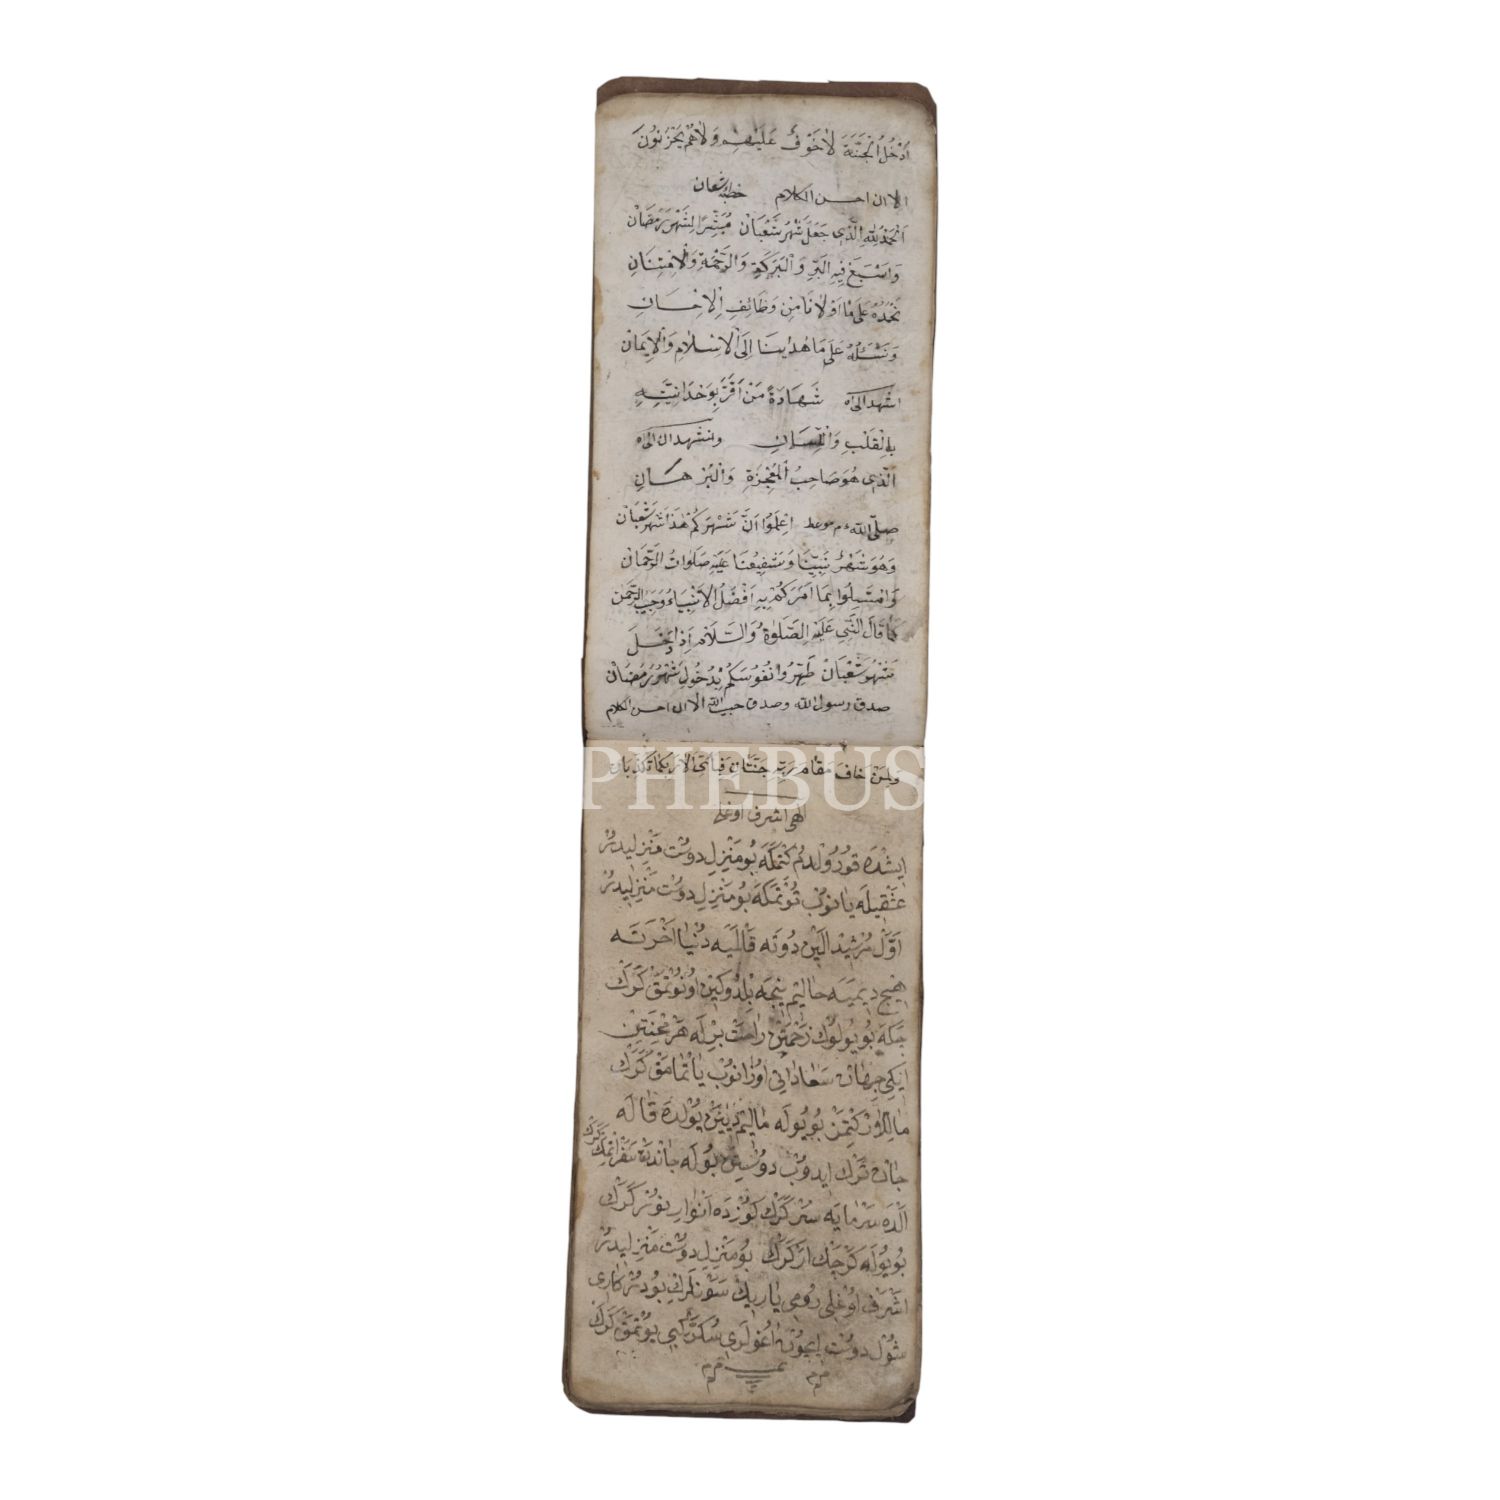 اُدْخُلُ الْجَنَّةَ لَا خَوْفٌ عَلَيْهِمْ وَلَا هُمْ يَحْزَنُونَ
الا ان احسن الكلام خطبهٔ شعبان
اَلْحَمْدُ لِلّٰهِ الَّذِى جَعَلَ شَهْرَ شَعْبَانَ مُبَشِّرًا لِشَهْرِ رَمَضَانَ
وَاَسْبَغَ فِيهِ الْبَرِّ وَالْبَرَكَةِ وَالرَّحْمَةِ وَالْاِمْتِنَانِ
نَحْمَدُهُ عَلَى مَا اَوْلَانَا مِنْ وَظَائِفِ الْاِحْسَانِ
وَنَسْئَلُهُ عَلَى مَا هَدٰينَا اِلَى الْاِسْلَامِ وَالْاِيمَانْ
اشهد الى اه شَهَادَةً مَنْ اَقَرَّ بِوَحْدَانِيَّتِهِ
بِالْقَلْبِ وَاللِّسَانِ ونشهد ان الى اه
اَلَّذِى هُوَ صَاحِبُ الْمُعْجِزَةِ وَالْبُرْهَانِ
صَلَّى اللّٰه اِعْلَمُوا اَنَّ شَهْرَكُمْ هٰذَا شَهْرُ شَعْبَانْ
وَهُوَ شَهْرُ نَبِيِّنَا وَشَفِيعُنَا عَلَيْهِ صَلَوَاتُ الرَّحْمَانْ
وَامْتَثِلُوا بِمَا اَمَرَكُمْ بِهِ اَفْضَلُ الْاَنْبِيَاءِ وَحَبِيبُ الرَّحْمٰنْ
كَمَا قَالَ النَّبِى عَلَيْهِ الصَّلَوٰةُ وَالسَّلَامْ اِذَا دَخَلَ
شَهْرُ شَعْبَانْ طَهِّرُوا نُفُوسَكُمْ بِدُخُولِ شَهْرُ رَمَضَانْ
صدق رسول الله وصدق حبيب الله الا ان احسن الكلام
وَلِمَنْ خَافَ مَقَامَ رَبِّهِ جَنَّتَانِ فَبِأَىِّ الاء رَبِّكُمَا تُكَذِّبَانِ
PHEBUS
الهى اشرف اوغلى
اِيشْدَه قُورُولْدُمْ كِتْمَكَه بُو مَنْزِلِ دُوسْتْ مَنْزِلِيدُرْ
عَشْقِيلَه يَانُوبْ تُوتْمَكَه بُو مَنْزِلِ دُوسْتْ مَنْزِلِيدُرْ
اَوَّلْ مُرْشِيدْ اَلِينْ دُوتَه قَالْمَيَه دُنْيَا اٰخِرَتَه
هِيچْ دِيمَيَه حَالِيمْ نِيجَه بِلْدُوكِينْ اُونُوتْمَقْ كَرَكْ
چَكَه بُو يُولُوكْ زَحْمَتِنْ رَاحَتْ بِيلَه هَرْ مِحْنَتِينْ
اِيكِى جِهَانْ سَعَادَاتِى اُوزَانُوبْ يَاتْمَامَقْ كَرَكْ
مَالِلُولَرْ كِتْمَزْ بُو يُولَه مَالِيمْ دِيَيَنْ يُولْدَه قَالَه
جَانْ تَرْكْ اِيدُوبْ دُوسْتِى بُولَه جَانْدَنْ سَفَرْ اِتْمَكْ كَرَكْ
اَلْدَه سَرْمَايَه سِرْ كَرَكْ كُوزْدَه اَنْوَارِ نُورْ كَرَكْ
بُو يُولَه كَرْچَكْ اَرْ كَرَكْ بُو مَنْزِلِ دُوسْتْ مَنْزِلِيدُرْ
اَشْرَفْ اُوغْلِى رُومِى يَارِيكْ سَوْنْلَرِكْ بُودُرْ كَارِى
شُولْ دُوسْتْ اِيچُونْ اٰغُولَرِى سُكَّرْ كِبِى يُوتْمَقْ كَرَكْ